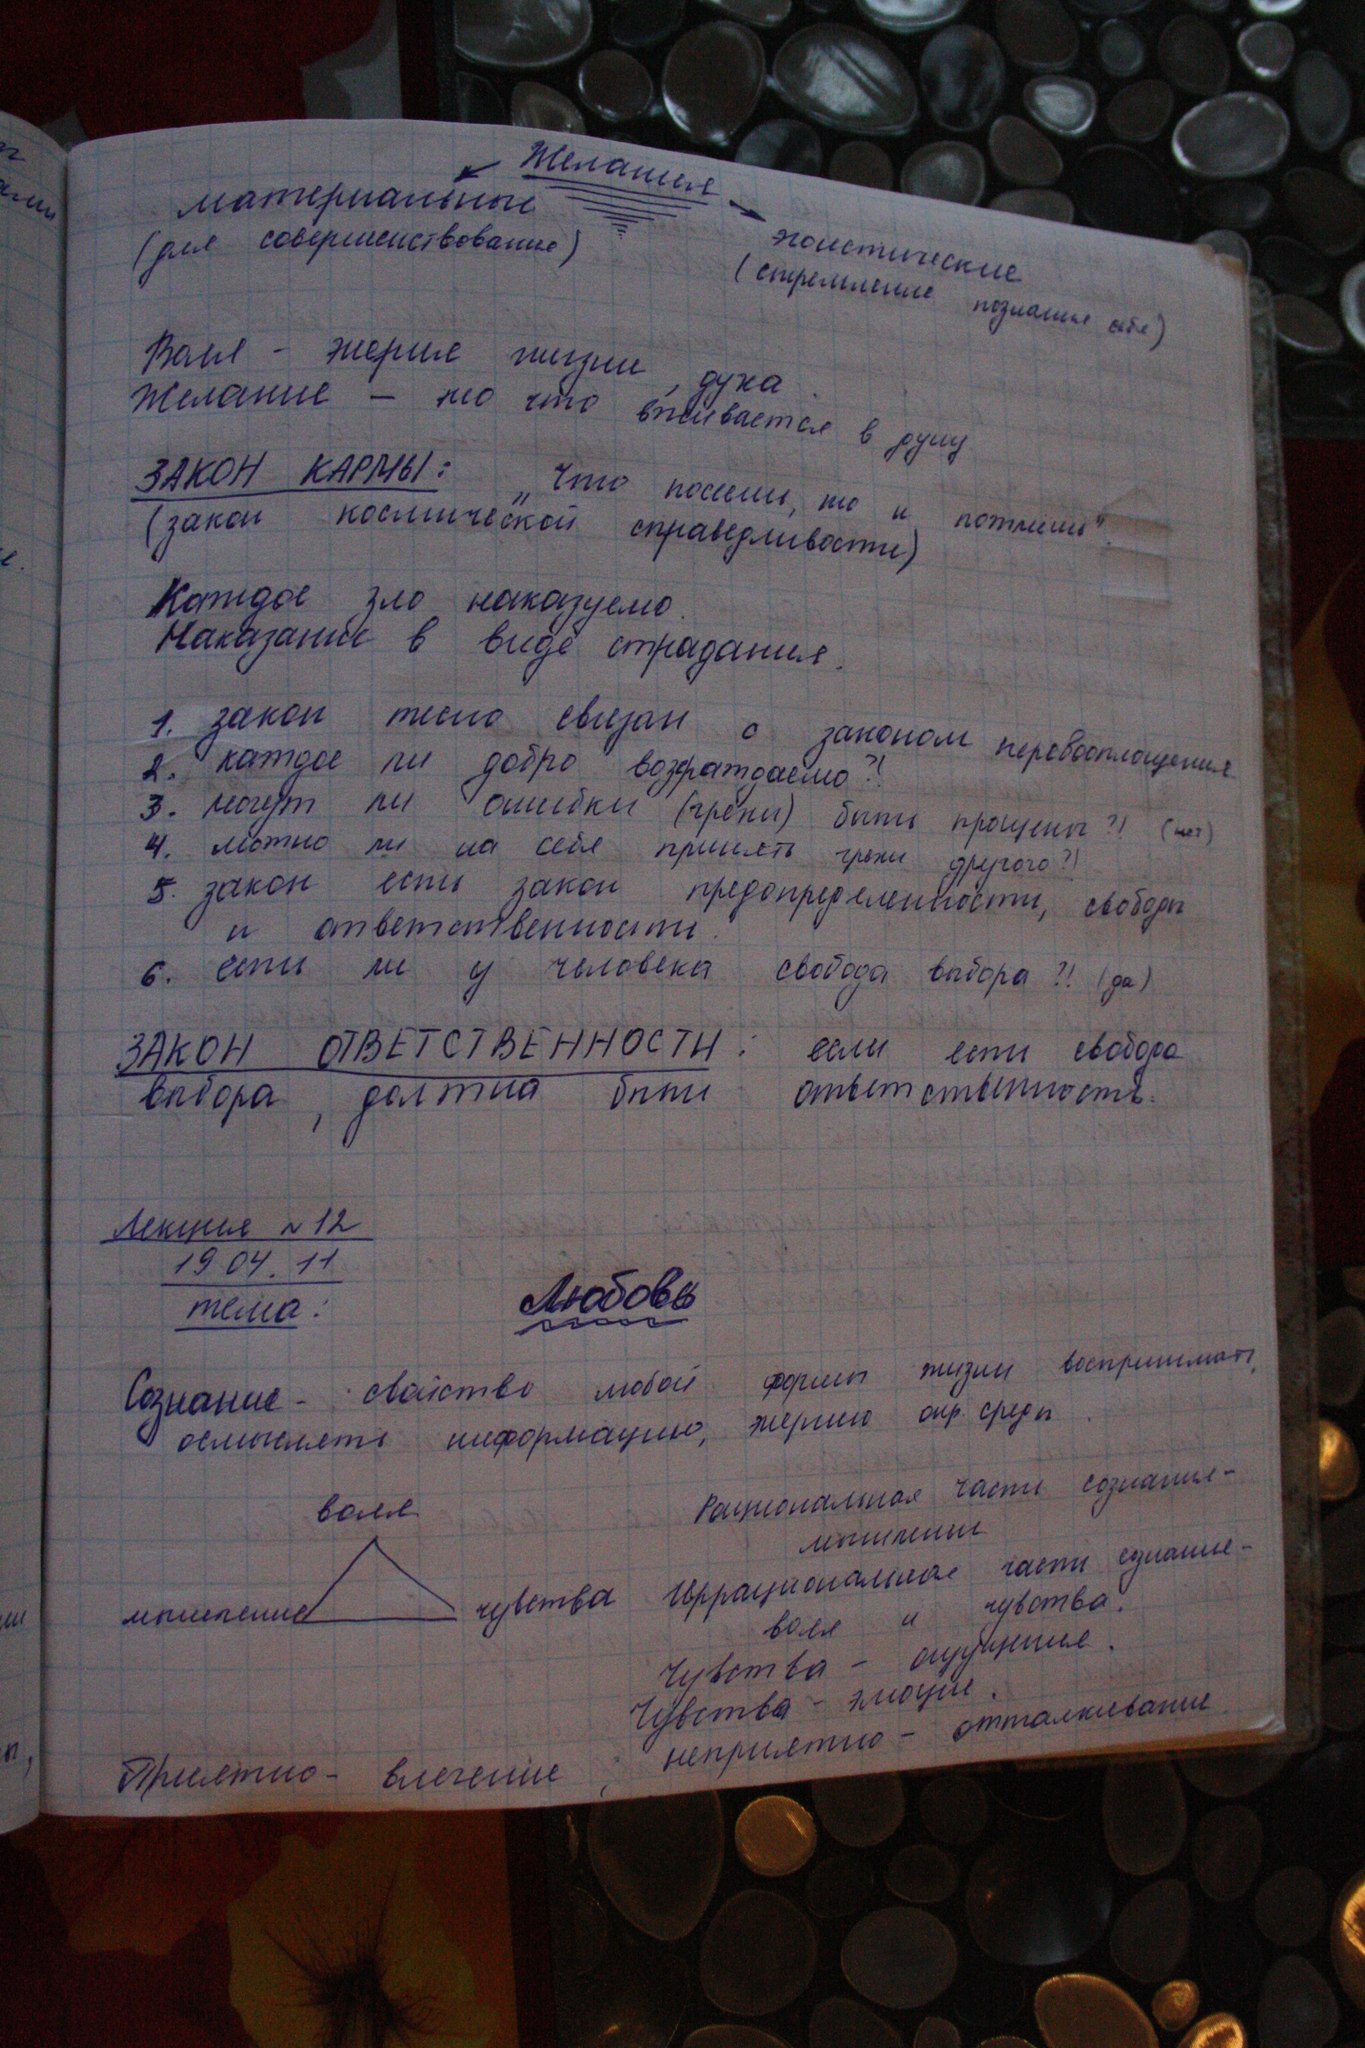 Желания
материальные
(для совершенствование)
эгоистические
(стремление познания себя)
Воля - энергия жизни, духа.
Желание - то что вживается в душу
ЗАКОН КАРМЫ: „Что посеешь, то и пожнешь".
(закон космической справедливости)
Каждое зло наказуемо.
Наказание в виде страдания.
1. закон тесно связан с законом перевоплощения
2. каждое ли добро вознаграждаемо?!
3. могут ли ошибки (грехи) быть прощены?! (нет)
4. можно ли на себя принять грехи другого?!
5. закон есть закон предопределенности, свободы
и ответственности.
6. есть ли у человека свобода выбора?! (да)
ЗАКОН ОТВЕТСТВЕННОСТИ: если есть свобода
выбора, должна быть ответственность.
Лекция №12
19.04.11
тема:
Любовь
Сознание - свойство любой формы жизни воспринимать,
осмыслять информацию, энергию окр. среды.
воля
мышление
чувства
Рациональная часть сознания -
мышление
Иррациональная часть сознание -
воля и чувства.
Чувства - ощущения.
Чувства - эмоции.
Приятно - влечение; неприятно - отталкивание